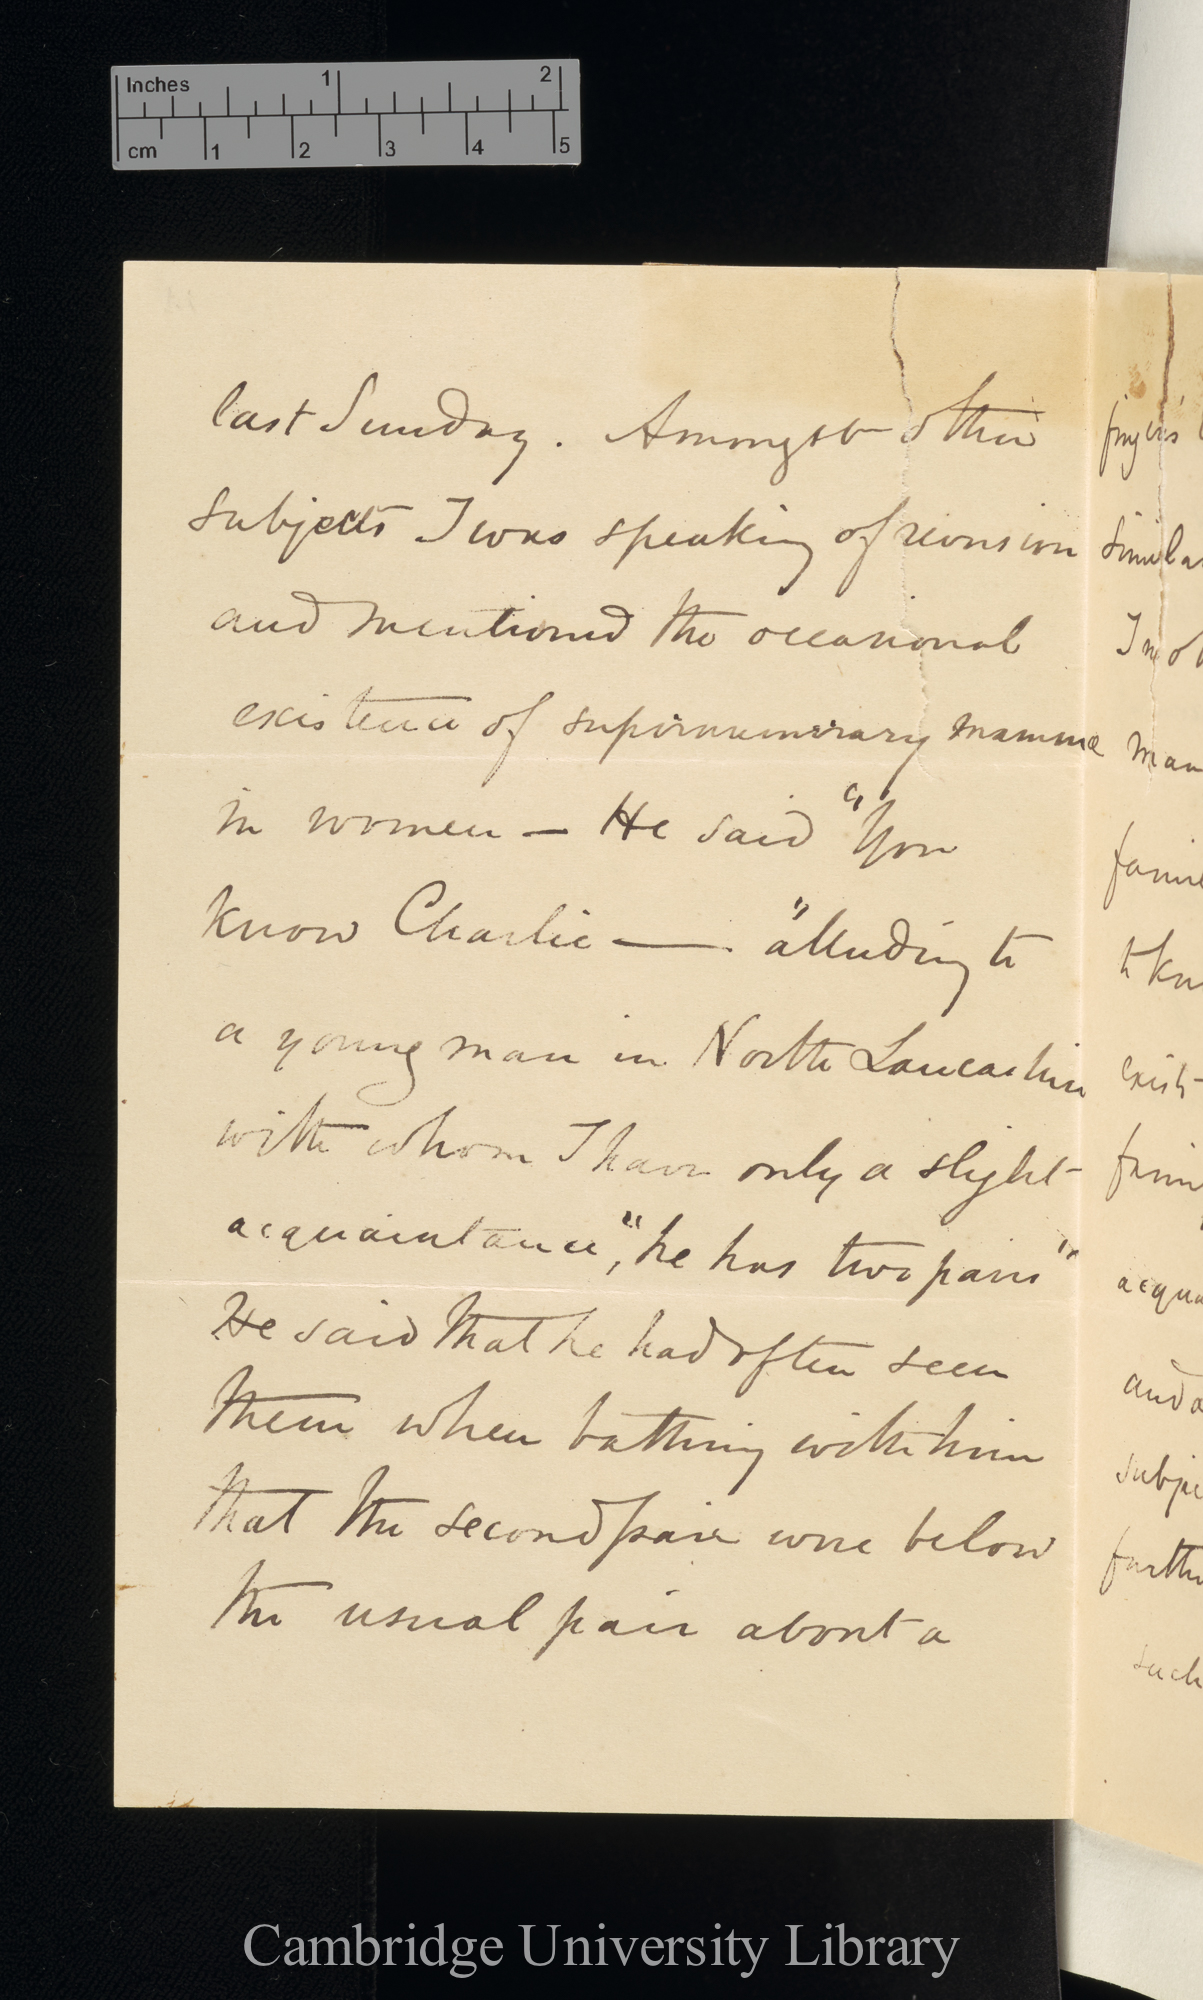 Inches 1 2
cm 1 2 3 4 5
last Sunday. Amongst other
subjects I was speaking of reversion
and mentioned the occasional
existence of supernumerary mammæ
in women — He said "You
know Charlie —— " alluding to
a young man in North Lancashire
with whom I have only a slight
acquaintance", "he has two pairs"
He said that he had often seen
them when bathing with him
that the second pair were below
the usual pair about a
Cambridge University Library